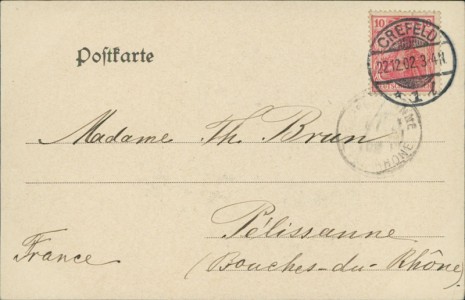 Postkarte
10
CREFELD
22.12.02. 3-4N
* 1 l
Madame Th. Brun
RHONE
Pélissanne
France
(Bouches-du-Rhône)